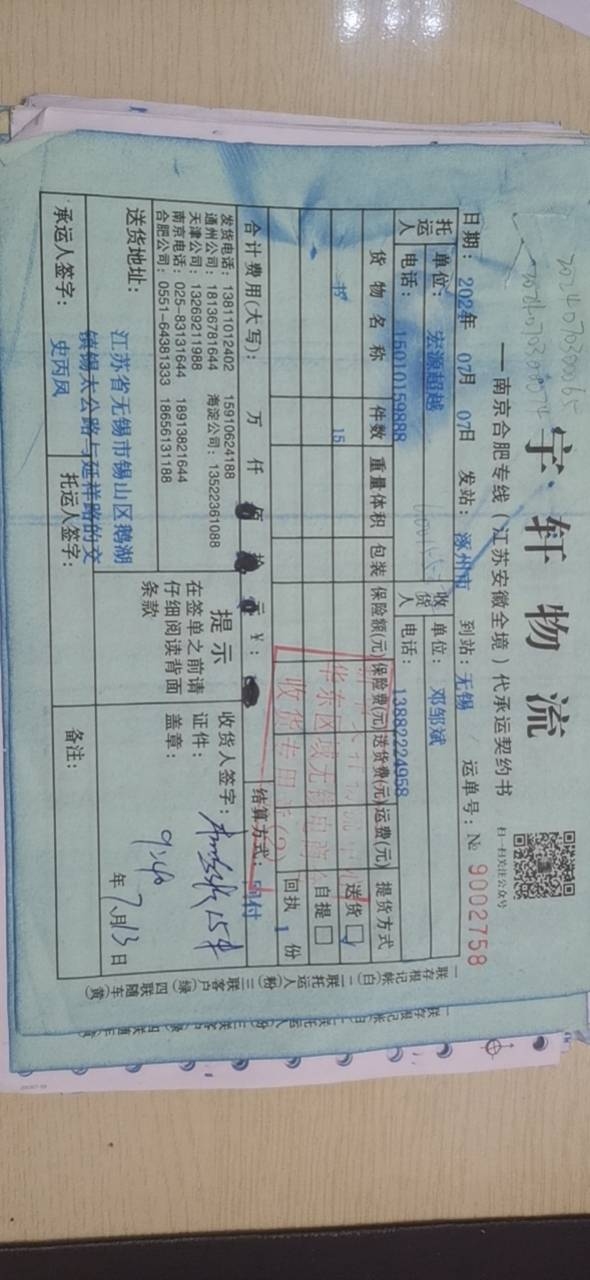 20240703000065
宇·轩物流
——南京合肥专线（江苏安徽全境）代承运契约书
扫一扫关注公众号
日期：202 年 07月 07日 发站：涿州市 到站：无锡 运单号：№ 9002758
托运人 单位：宏源超越 收货人 单位：邓邹斌
电话：15010159888 电话：13882224958
货物名称 件数 重量体积 包装 保险额(元) 保险费(元) 送货费(元) 运费(元) 提货方式
书 15 送货 ☑
自提 □
回执 1 份
华东区域无锡电商
收货专用章(2)
合计费用(大写)： 万 仟 佰 拾 元 ¥： 结算方式：回付
发货电话：13811012402 15910624188
通州公司：18136781644 海淀公司：13522361088
天津公司：13269211988
南京电话：025-83131644 18913821644
合肥公司：0551-64381333 18656131188
提示
在签单之前请
仔细阅读背面
条款
收货人签字：
证件：
盖章：
9:40
年 7月13日
送货地址：江苏省无锡市锡山区鹅湖
镇锡太公路与延祥路的交
承运人签字：史丙凤 托运人签字： 备注：
一联存根记帐(白) 二联托运人(粉) 三联客户(绿) 四联随车(黄)